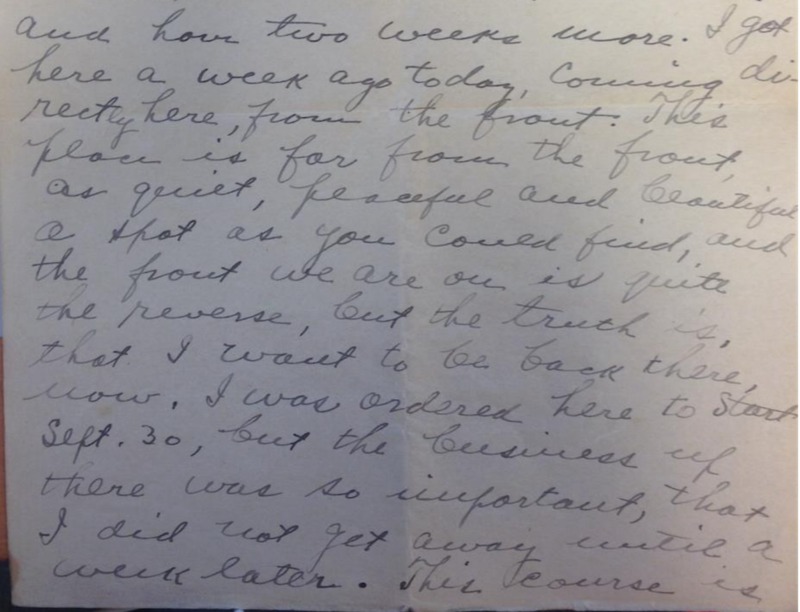 and have two weeks more. I got
here a week ago today, coming di-
rectly here, from the front. This
place is far from the front,
as quiet, peaceful and beautiful
a spot as you could find, and
the front we are on is quite
the reverse, but the truth is,
that I want to be back there,
now. I was ordered here to start
Sept. 30, but the business up
there was so important, that
I did not get away until a
week later. This course is